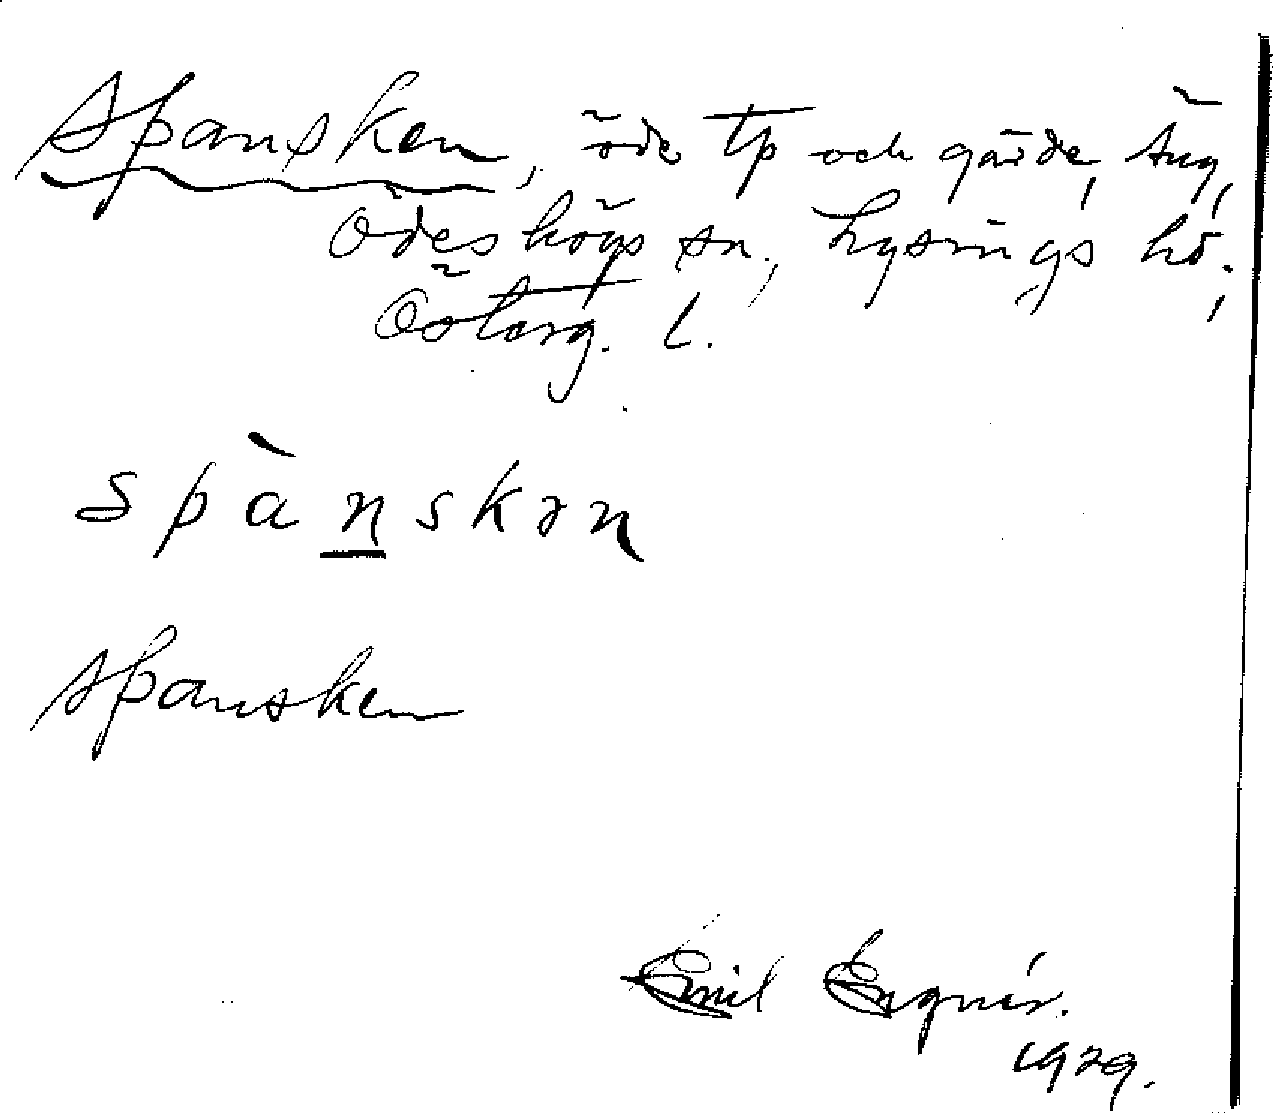 Spansken, öde tp och gärde, Äng,
Ödeshögs sn., Lysings hd.,
Österg. l.
spànskən
Spansken
Emil Enqvist.
1929.